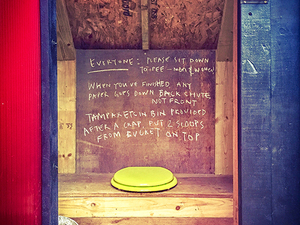 EVERYONE: PLEASE SIT DOWN
TO PEE – MEN & WOMEN
WHEN YOU'VE FINISHED, ANY
PAPER GOES DOWN BACK CHUTE
NOT FRONT
TAMPAX ETC IN BIN PROVIDED
AFTER A CRAP, PUT 2 SCOOPS
FROM BUCKET ON TOP